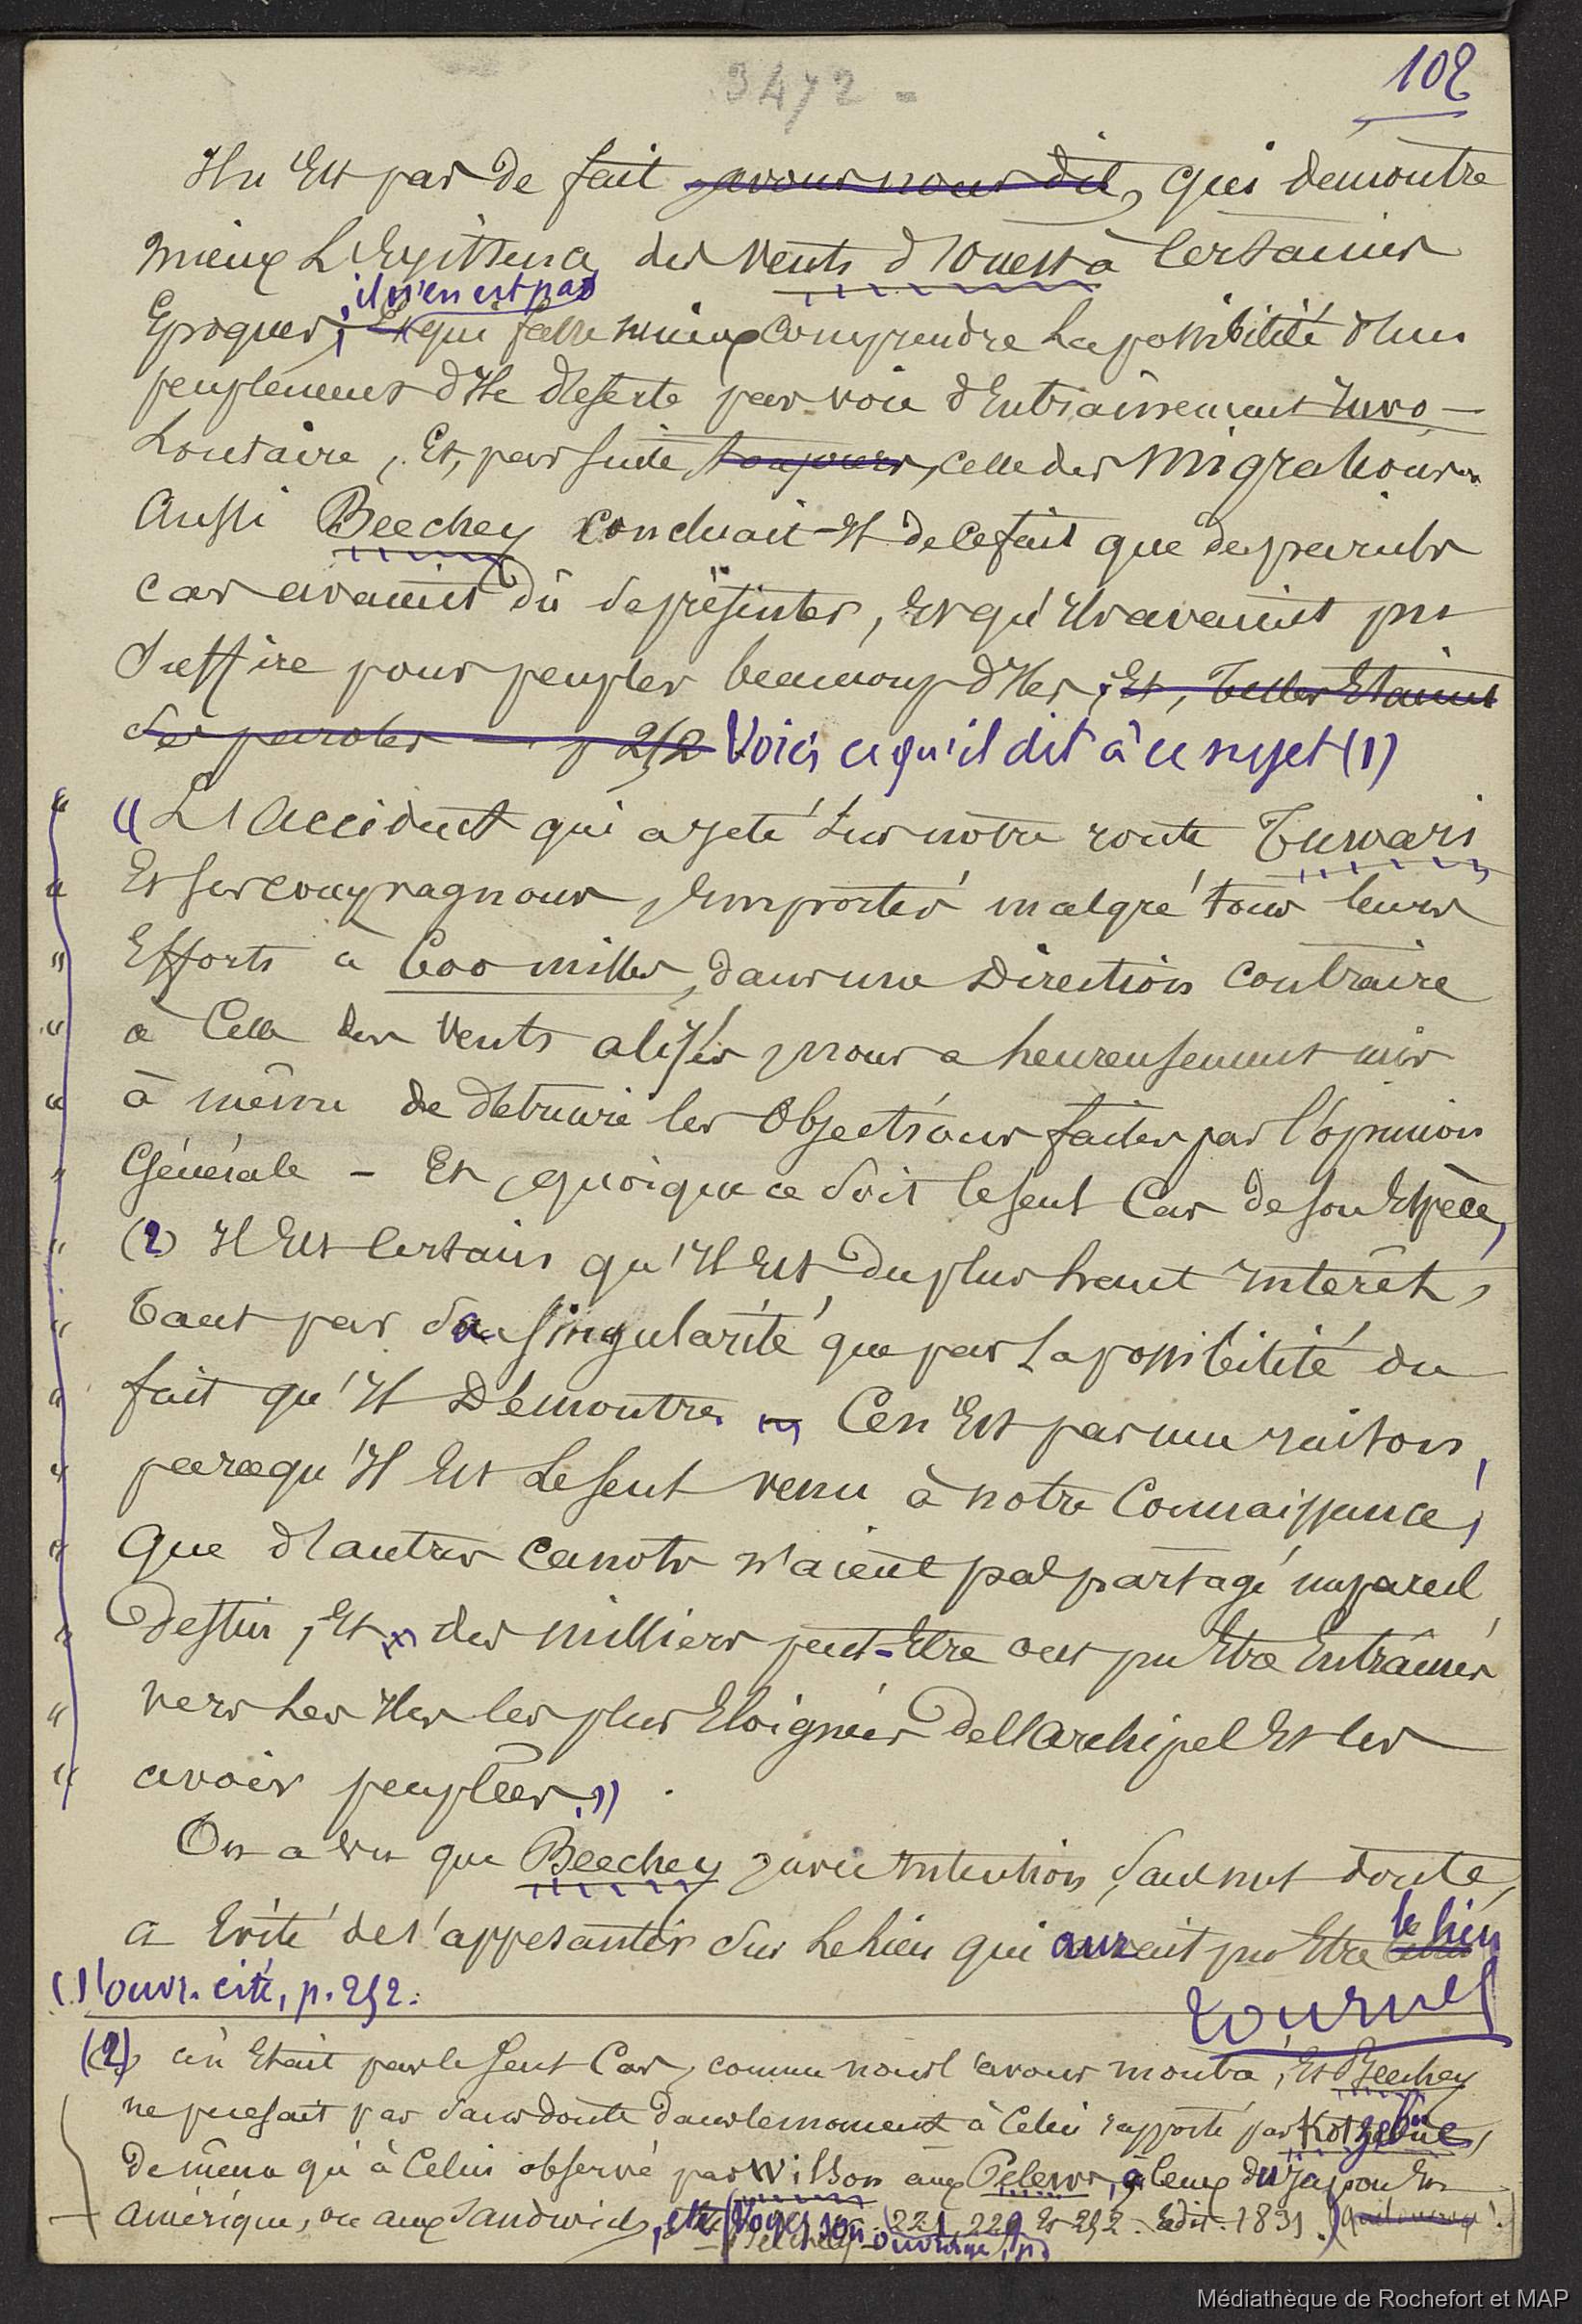 3472 -
102
Il n'est pas de fait avons nous dit, qui démontre
mieux l'existence des vents d'ouest à certaines
, il n'en est pas
Epoques, Et qui fasse mieux comprendre la possibilité d'un
peuplement d'Ile déserte par voie d'Entrainement Invo-
lontaire, Et, par suite toujours, celle des migrations.
Aussi Beechey concluait-il de ce fait que de pareils
cas avaient dû se présenter, Et qu'ils avaient pu
suffire pour peupler beaucoup d'Iles ; Et, Telles Etaient
ses paroles — p 252 Voici ce qu'il dit à ce sujet (1)
« L'accident qui a jeté sur notre route Tuwari
Et ses compagnons, Emportés malgré tous leurs
Efforts à 600 milles, dans une Direction contraire
à Celle des vents alisés, nous a heureusement mis
à même de détruire les Objections faites par l'opinion
Générale - Et, quoique ce soit le seul Cas de son Espèce,
(2) Il Est certain qu'Il Est du plus haut Intérêt,
tant par sa singularité que par la possibilité du
fait qu'Il Démontre. — Ce n'Est pas une raison,
parcequ'Il Est le seul venu à notre Connaissance,
que d'autres canots n'aient pas partagé un pareil
Destin, Et des milliers peut-Etre ont pu Etre Entraînés
vers les Iles les plus Eloignées de l'Archipel Et les
avoir peuplées. »
On a vu que Beechey, avec Intention, sans nul doute,
a Evité de s'appesantir sur le lieu qui aurait pu Etre le lieu
(1) ouvr. cité, p. 252.
tournel
(2) ce n'Etait pas le seul Cas, comme nous l'avons montré, Et Beechey
ne pensait pas sans doute dans le moment à Celui rapporté par Kotzebüe,
De même qu'à Celui observé par Wilson aux Pelew, à ceux du Japon En
Amérique, ou aux Sandwich, etc (Voyez son ouvrage, p. 221, 229 Et 252. Edit. 1831.)